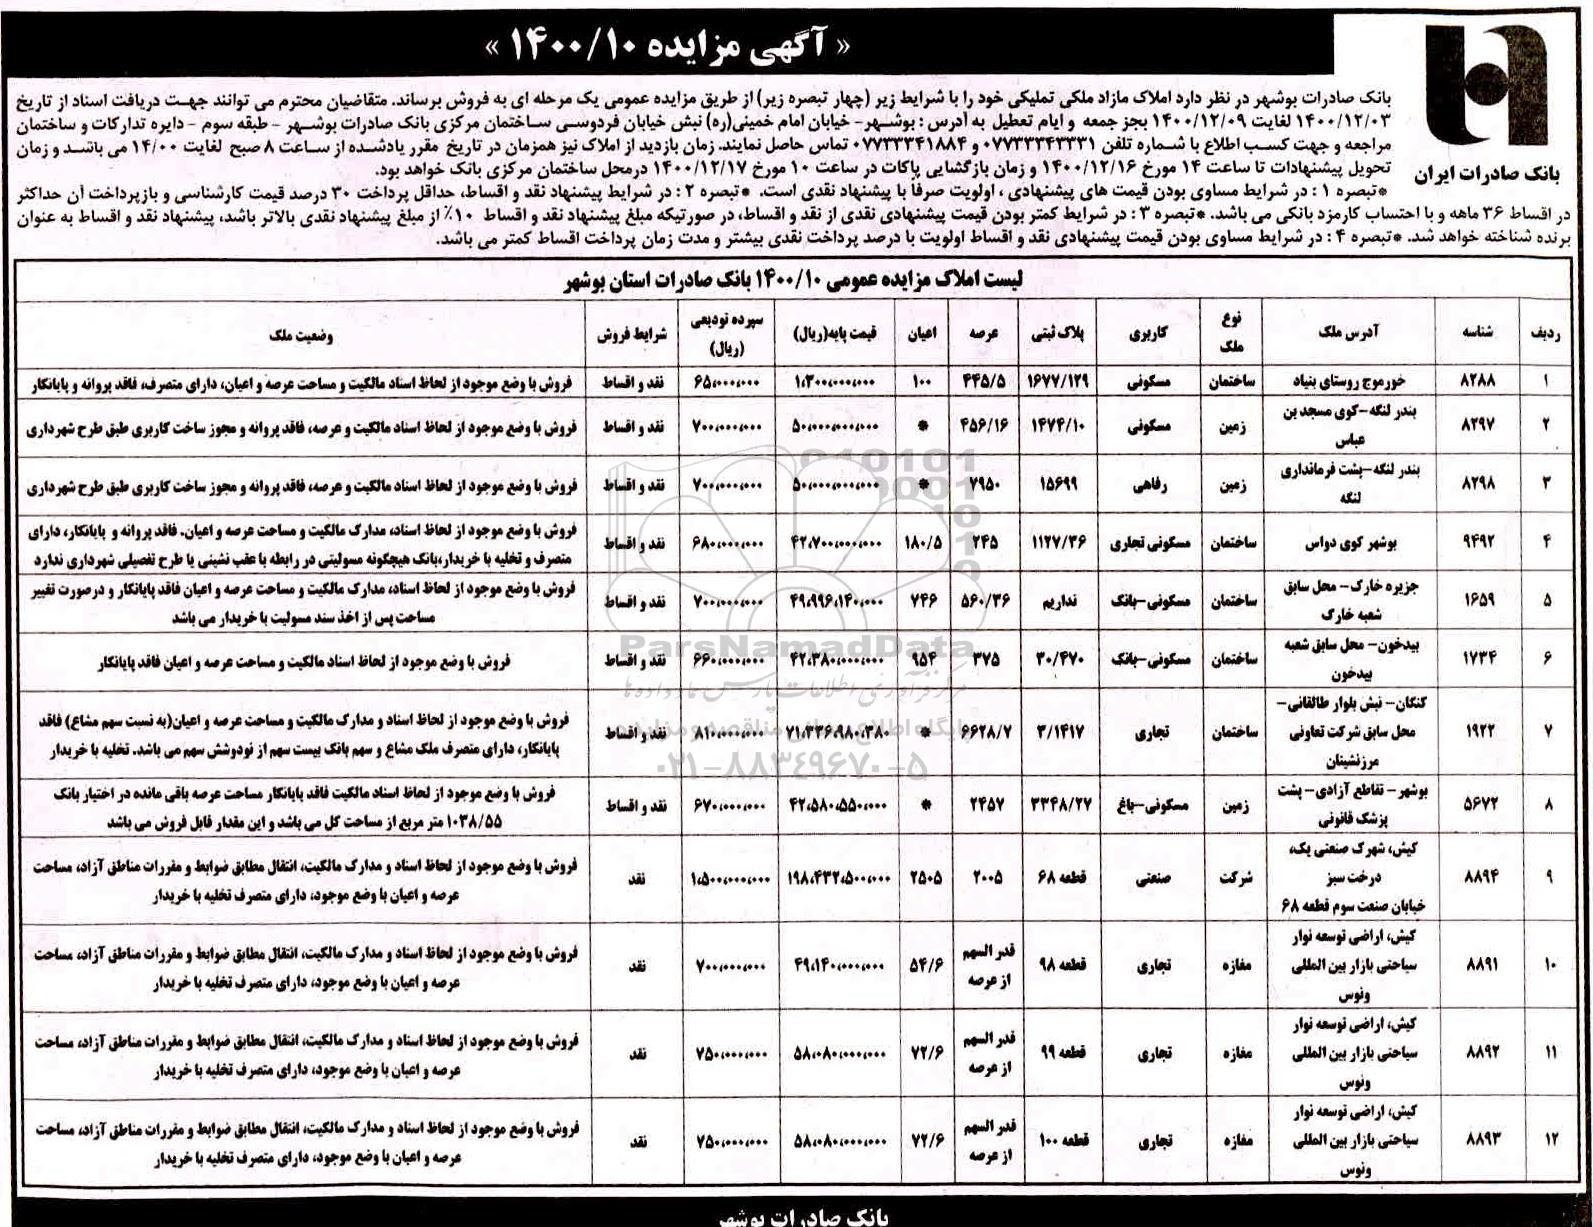 « آگهی مزایده ۱۴۰۰/۱۰ »
بانک صادرات ایران
بانک صادرات بوشهر در نظر دارد املاک مازاد ملکی تملیکی خود را با شرایط زیر (چهار تبصره زیر) از طریق مزایده عمومی یک مرحله ای به فروش برساند. متقاضیان محترم می توانند جهت دریافت اسناد از تاریخ
۱۴۰۰/۱۲/۰۳ لغایت ۱۴۰۰/۱۲/۰۹ بجز جمعه و ایام تعطیل به آدرس : بوشهر- خیابان امام خمینی(ره) نبش خیابان فردوسی ساختمان مرکزی بانک صادرات بوشهر - طبقه سوم - دایره تدارکات و ساختمان
مراجعه و جهت کسب اطلاع با شماره تلفن ۰۷۷۳۳۳۴۳۳۳۱ و ۰۷۷۳۳۳۴۱۸۸۴ تماس حاصل نمایند. زمان بازدید از املاک نیز همزمان در تاریخ مقرر یادشده از ساعت ۸ صبح لغایت ۱۴/۰۰ می باشد و زمان
تحویل پیشنهادات تا ساعت ۱۴ مورخ ۱۴۰۰/۱۲/۱۶ و زمان بازگشایی پاکات در ساعت ۱۰ مورخ ۱۴۰۰/۱۲/۱۷ درمحل ساختمان مرکزی بانک خواهد بود.
*تبصره ۱ : در شرایط مساوی بودن قیمت های پیشنهادی ، اولویت صرفاً با پیشنهاد نقدی است. *تبصره ۲ : در شرایط پیشنهاد نقد و اقساط، حداقل پرداخت ۳۰ درصد قیمت کارشناسی و بازپرداخت آن حداکثر
در اقساط ۳۶ ماهه و با احتساب کارمزد بانکی می باشد. *تبصره ۳ : در شرایط کمتر بودن قیمت پیشنهادی نقدی از نقد و اقساط، در صورتیکه مبلغ پیشنهاد نقد و اقساط ۱۰٪ از مبلغ پیشنهاد نقدی بالاتر باشد، پیشنهاد نقد و اقساط به عنوان
برنده شناخته خواهد شد. *تبصره ۴ : در شرایط مساوی بودن قیمت پیشنهادی نقد و اقساط اولویت با درصد پرداخت نقدی بیشتر و مدت زمان پرداخت اقساط کمتر می باشد.
لیست املاک مزایده عمومی ۱۴۰۰/۱۰ بانک صادرات استان بوشهر
ردیف شناسه آدرس ملک نوع ملک کاربری پلاک ثبتی عرصه اعیان قیمت پایه(ریال) سپرده تودیعی (ریال) شرایط فروش وضعیت ملک
۱ ۸۲۸۸ خورموج روستای بنیاد ساختمان مسکونی ۱۶۷۷/۱۲۹ ۴۴۵/۵ ۱۰۰ ۱،۳۰۰،۰۰۰،۰۰۰ ۶۵،۰۰۰،۰۰۰ نقد و اقساط فروش با وضع موجود از لحاظ اسناد مالکیت و مساحت عرصه و اعیان، دارای متصرف، فاقد پروانه و پایانکار
۲ ۸۲۹۷ بندر لنگه-کوی مسجد بن عباس زمین مسکونی ۱۴۷۴/۱۰ ۴۵۶/۱۶ * ۵۰،۰۰۰،۰۰۰،۰۰۰ ۷۰۰،۰۰۰،۰۰۰ نقد و اقساط فروش با وضع موجود از لحاظ اسناد مالکیت و عرصه، فاقد پروانه و مجوز ساخت کاربری طبق طرح شهرداری
۳ ۸۲۹۸ بندر لنگه-پشت فرمانداری لنگه زمین رفاهی ۱۵۶۹۹ ۷۹۵۰ * ۵۰،۰۰۰،۰۰۰،۰۰۰ ۷۰۰،۰۰۰،۰۰۰ نقد و اقساط فروش با وضع موجود از لحاظ اسناد مالکیت و عرصه، فاقد پروانه و مجوز ساخت کاربری طبق طرح شهرداری
۴ ۹۴۹۲ بوشهر کوی دواس ساختمان مسکونی تجاری ۱۱۲۷/۳۶ ۲۴۵ ۱۸۰/۵ ۴۲،۷۰۰،۰۰۰،۰۰۰ ۶۸۰،۰۰۰،۰۰۰ نقد و اقساط فروش با وضع موجود از لحاظ اسناد، مدارک مالکیت و مساحت عرصه و اعیان. فاقد پروانه و پایانکار، دارای
متصرف و تخلیه با خریدار،بانک هیچگونه مسولیتی در رابطه با عقب نشینی یا طرح تفصیلی شهرداری ندارد
۵ ۱۶۵۹ جزیره خارک- محل سابق شعبه خارک ساختمان مسکونی-بانک نداریم ۵۶۰/۳۶ ۷۴۶ ۴۹،۹۹۶،۱۴۰،۰۰۰ ۷۰۰،۰۰۰،۰۰۰ نقد و اقساط فروش با وضع موجود از لحاظ اسناد، مدارک مالکیت و مساحت عرصه و اعیان فاقد پایانکار و درصورت تغییر
مساحت پس از اخذ سند مسولیت با خریدار می باشد
۶ ۱۷۳۴ بیدخون- محل سابق شعبه بیدخون ساختمان مسکونی-بانک ۳۰/۴۷۰ ۳۷۵ ۹۵۴ ۴۲،۳۸۰،۰۰۰،۰۰۰ ۶۶۰،۰۰۰،۰۰۰ نقد و اقساط فروش با وضع موجود از لحاظ اسناد مالکیت و مساحت عرصه و اعیان فاقد پایانکار
۷ ۱۹۲۲ کنگان- نبش بلوار طالقانی- محل سابق شرکت تعاونی مرزنشینان ساختمان تجاری ۳/۱۴۱۷ ۶۶۲۸/۷ * ۷۱،۳۳۶،۹۸۰،۳۸۰ ۸۱۰،۰۰۰،۰۰۰ نقد و اقساط فروش با وضع موجود از لحاظ اسناد و مدارک مالکیت و مساحت عرصه و اعیان(به نسبت سهم مشاع) فاقد
پایانکار، دارای متصرف ملک مشاع و سهم بانک بیست سهم از نودوشش سهم می باشد. تخلیه با خریدار
۸ ۵۶۷۲ بوشهر- تقاطع آزادی- پشت پزشک قانونی زمین مسکونی-باغ ۳۳۴۸/۲۷ ۲۴۵۷ * ۴۲،۵۸۰،۵۵۰،۰۰۰ ۶۷۰،۰۰۰،۰۰۰ نقد و اقساط فروش با وضع موجود از لحاظ اسناد مالکیت فاقد پایانکار مساحت عرصه باقی مانده در اختیار بانک
۱۰۳۸/۵۵ متر مربع از مساحت کل می باشد و این مقدار قابل فروش می باشد
۹ ۸۸۹۴ کیش، شهرک صنعتی یک، درخت سبز خیابان صنعت سوم قطعه ۶۸ شرکت صنعتی قطعه ۶۸ ۲۰۰۵ ۲۵۰۵ ۱۹۸،۴۳۲،۵۰۰،۰۰۰ ۱،۵۰۰،۰۰۰،۰۰۰ نقد فروش با وضع موجود از لحاظ اسناد و مدارک مالکیت، انتقال مطابق ضوابط و مقررات مناطق آزاد، مساحت
عرصه و اعیان با وضع موجود، دارای متصرف تخلیه با خریدار
۱۰ ۸۸۹۱ کیش، اراضی توسعه نوار سیاحتی بازار بین المللی ونوس مغازه تجاری قطعه ۹۸ قدر السهم از عرصه ۵۴/۶ ۴۹،۱۴۰،۰۰۰،۰۰۰ ۷۰۰،۰۰۰،۰۰۰ نقد فروش با وضع موجود از لحاظ اسناد و مدارک مالکیت، انتقال مطابق ضوابط و مقررات مناطق آزاد، مساحت
عرصه و اعیان با وضع موجود، دارای متصرف تخلیه با خریدار
۱۱ ۸۸۹۲ کیش، اراضی توسعه نوار سیاحتی بازار بین المللی ونوس مغازه تجاری قطعه ۹۹ قدر السهم از عرصه ۷۲/۶ ۵۸،۰۸۰،۰۰۰،۰۰۰ ۷۵۰،۰۰۰،۰۰۰ نقد فروش با وضع موجود از لحاظ اسناد و مدارک مالکیت، انتقال مطابق ضوابط و مقررات مناطق آزاد، مساحت
عرصه و اعیان با وضع موجود، دارای متصرف تخلیه با خریدار
۱۲ ۸۸۹۳ کیش، اراضی توسعه نوار سیاحتی بازار بین المللی ونوس مغازه تجاری قطعه ۱۰۰ قدر السهم از عرصه ۷۲/۶ ۵۸،۰۸۰،۰۰۰،۰۰۰ ۷۵۰،۰۰۰،۰۰۰ نقد فروش با وضع موجود از لحاظ اسناد و مدارک مالکیت، انتقال مطابق ضوابط و مقررات مناطق آزاد، مساحت
عرصه و اعیان با وضع موجود، دارای متصرف تخلیه با خریدار
ParsNamadData
۰۲۱-۸۸۳۴۹۶۷۰-۵
بانک صادرات بوشهر